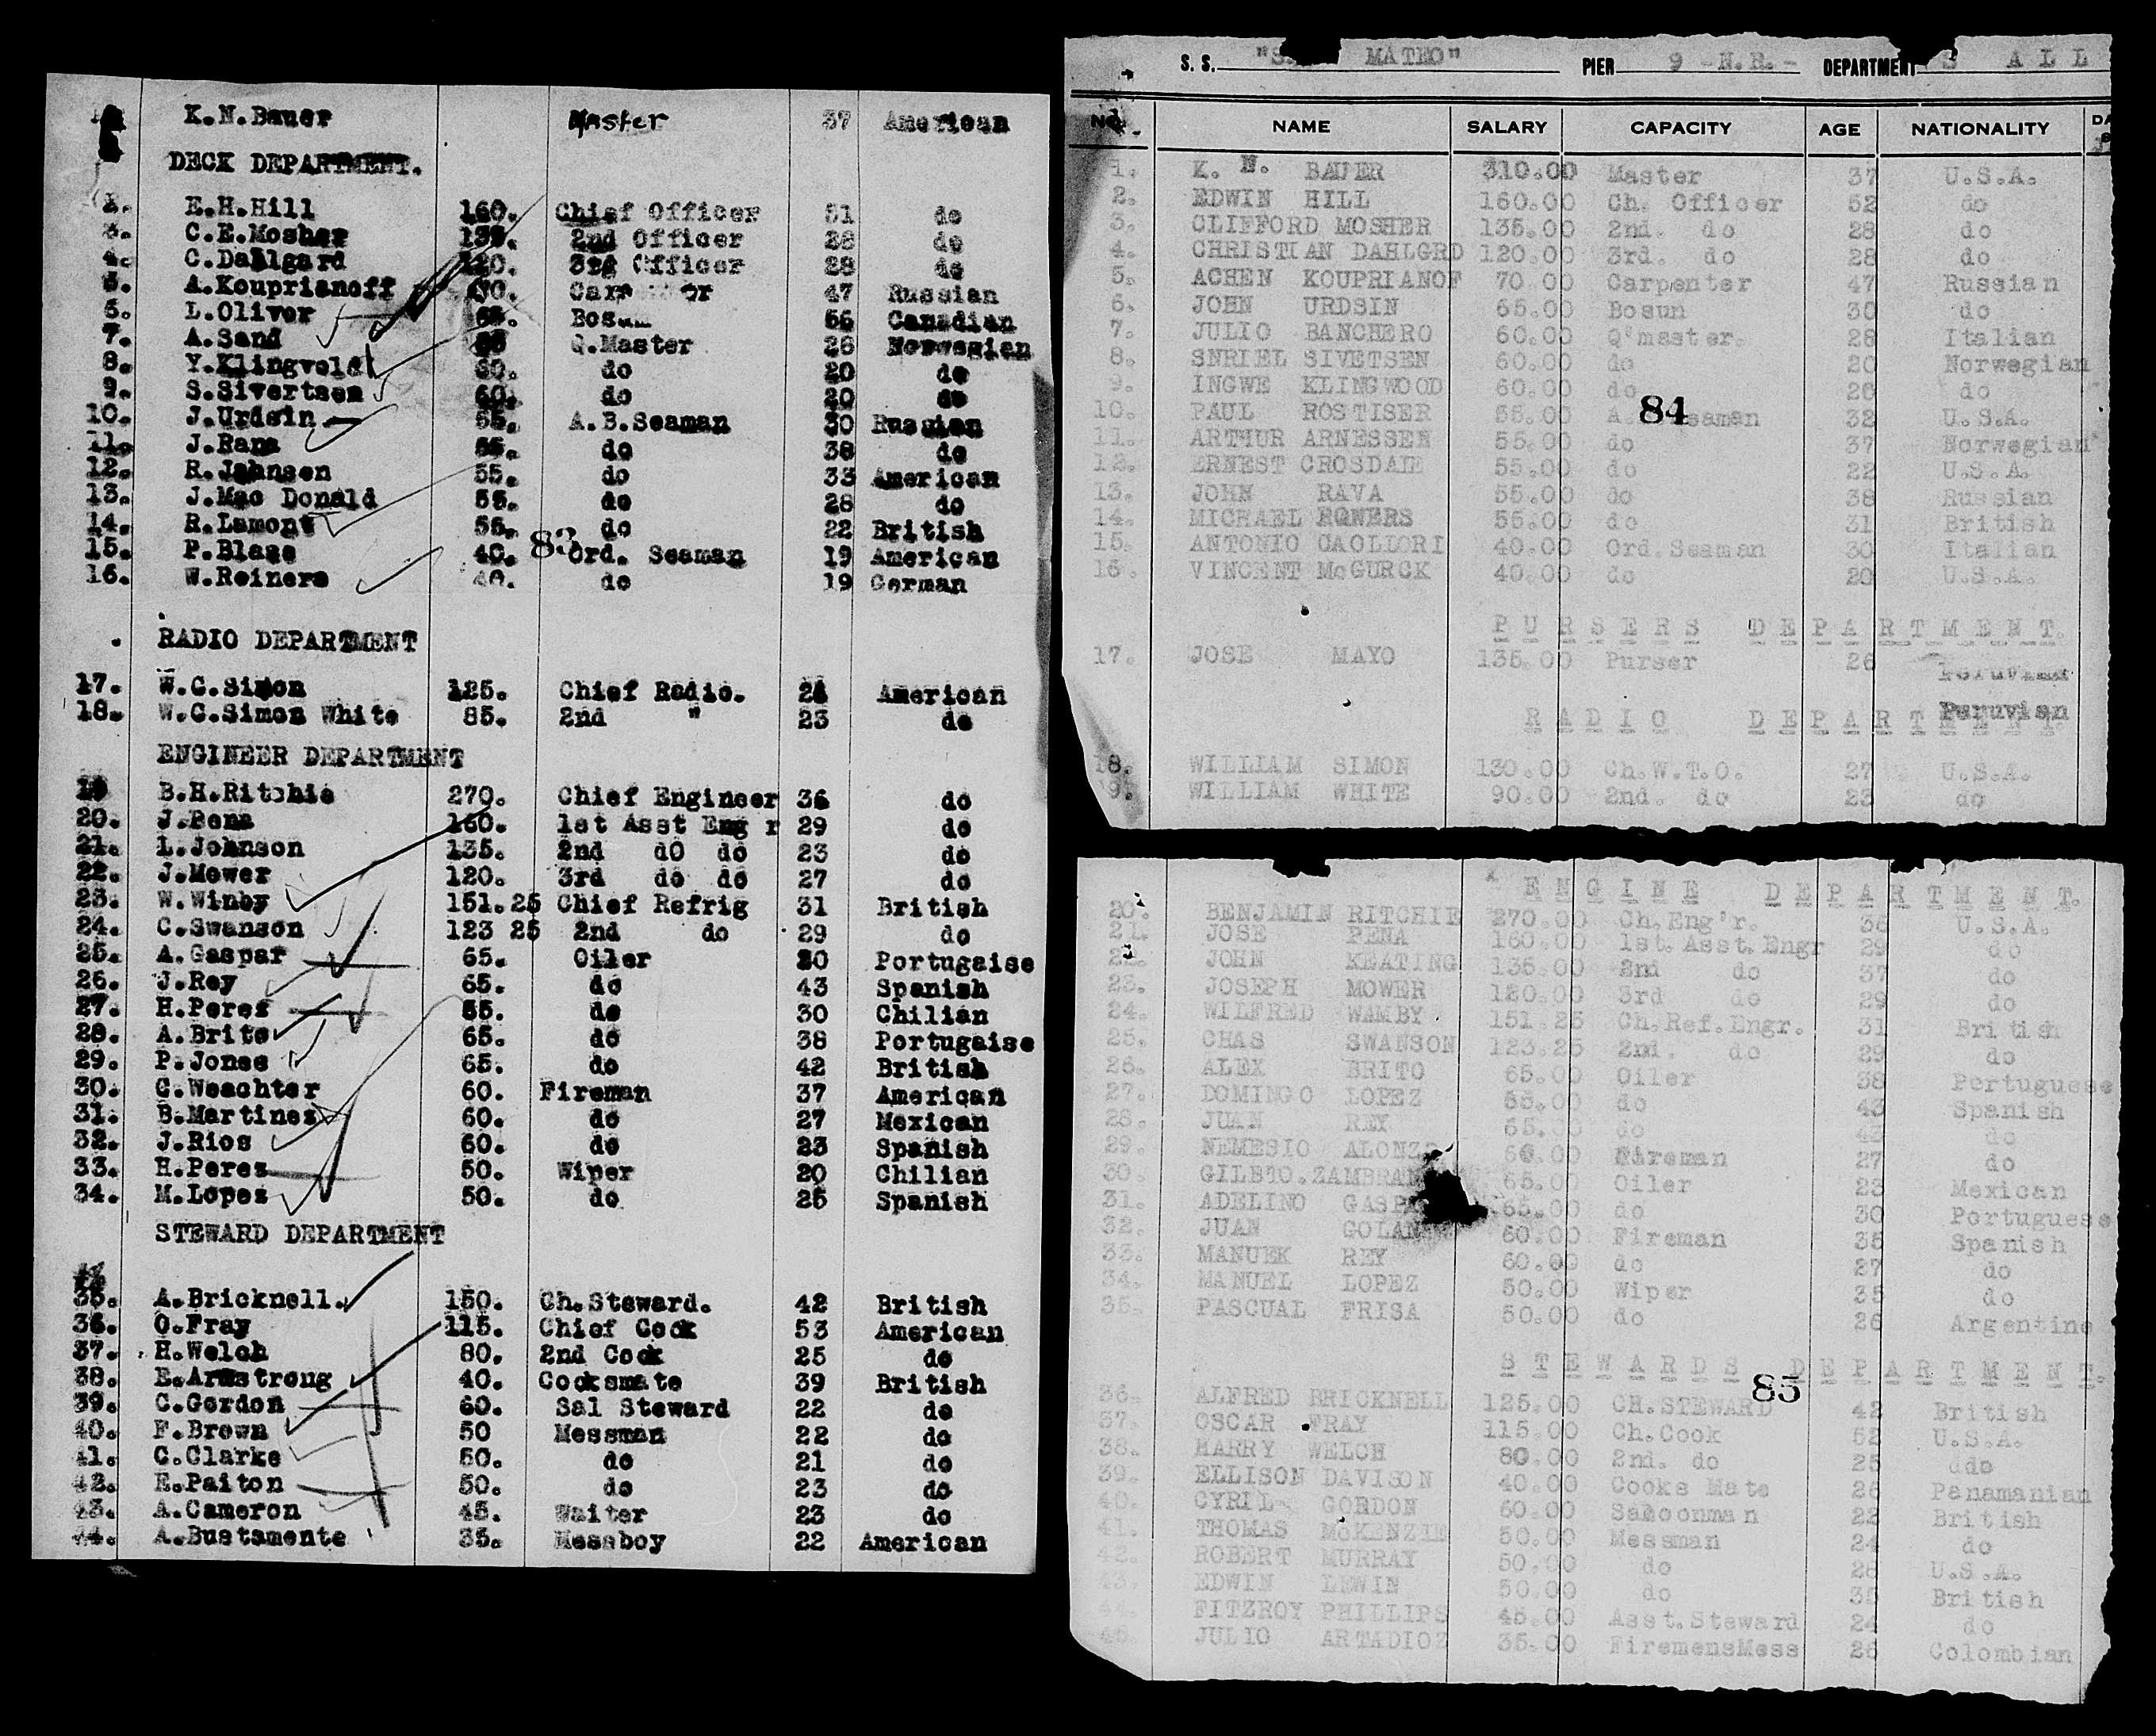 K.N.Bauer Master 37 American
DECK DEPARTMENT.
2. E.H.Hill 160. Chief Officer 51 do
3. C.E.Mosher 135. 2nd Officer 28 do
4. C.Dahlgard 120. 3rd Officer 28 do
5. A.Kouprianoff 70. Carpenter 47 Russian
6. L.Oliver 65. Bosun 56 Canadian
7. A.Sand Q.Master 26 Norwegian
8. Y.Klingvold 60. do 20 do
9. S.Sivertsen 60. do 20 do
10. J.Urdsin 55. A.B.Seaman 30 Russian
11. J.Rana 55. do 38 do
12. R.Johnsen 55. do 33 American
13. J.Mac Donald 55. do 28 do
14. R.Lamont 55. do 22 British
15. P.Blase 40. Ord. Seaman 19 American
83
16. W.Reiners 40. do 19 German
RADIO DEPARTMENT
17. W.C.Simon 125. Chief Radio. American
18. W.C.Simon White 85. 2nd " 23 do
ENGINEER DEPARTMENT
19 B.H.Ritchie 270. Chief Engineer 36 do
20. J.Pena 160. 1st Asst Eng r 29 do
21. L.Johnson 135. 2nd dO do 23 do
22. J.Mower 120. 3rd do do 27 do
23. W.Winby 151.25 Chief Refrig 31 British
24. C.Swanson 123 25 2nd do 29 do
25. A.Gaspar 65. Oiler 30 Portugaise
26. J.Rey 65. do 43 Spanish
27. H.Peres 55. do 30 Chilian
28. A.Brito 65. do 38 Portugaise
29. P.Jones 65. do 42 British
30. G.Weachter 60. Fireman 37 American
31. B.Martinez 60. do 27 Mexican
32. J.Rios 60. do 23 Spanish
33. H.Peres 50. Wiper 20 Chilian
34. M.Lopes 50. do 25 Spanish
STEWARD DEPARTMENT
35. A.Bricknell. 150. Ch.Steward. 42 British
36. O.Fray 115. Chief Cook 53 American
37. H.Welch 80. 2nd Cook 25 do
38. E.Armstrong 40. Cooksmate 39 British
39. C.Gordon 60. Sal Steward 22 do
40. F.Brown 50 Messman 22 do
41. C.Clarke 50. do 21 do
42. E.Paiton 50. do 23 do
43. A.Cameron 45. Waiter 23 do
44. A.Bustamente 35. Messboy 22 American
S. S. "S MATEO" PIER 9 -N.R.- DEPARTMENT S ALL
NO. NAME SALARY CAPACITY AGE NATIONALITY DA
1. K. N. BAUER 310.00 Master 37 U.S.A.
2. EDWIN HILL 160.00 Ch. Officer 52 do
3. CLIFFORD MOSHER 135.00 2nd. do 28 do
4. CHRISTIAN DAHLGRD 120.00 3rd. do 28 do
5. ACHEN KOUPRIANOF 70 00 Carpenter 47 Russian
6. JOHN URDSIN 65.00 Bosun 30 do
7. JULIO BANCHERO 60.00 Q'master. 28 Italian
8. SNRIEL SIVETSEN 60.00 do 20 Norwegian
9. INGWE KLINGWOOD 60.00 do 26 do
10. PAUL ROSTISER 55.00 A. Seaman 32 U.S.A.
84
11. ARTHUR ARNESSEN 55.00 do 37 Norwegian
12. ERNEST CROSDAIE 55.00 do 22 U.S.A.
13. JOHN RAVA 55.00 do 38 Russian
14. MICHAEL BOWERS 55.00 do 31 British
15. ANTONIO CAOLLORI 40.00 Ord.Seaman 30 Italian
16. VINCENT McGURCK 40.00 do 20 U.S.A.
PURSERS DEPARTMENT.
17. JOSE MAYO 135.00 Purser 26 Peruvian
Peruvian
RADIO DEPARTMENT.
18. WILLIAM SIMON 130.00 Ch.W.T.O. 27 U.S.A.
9. WILLIAM WHITE 90.00 2nd. do 23 do
ENGINE DEPARTMENT.
20. BENJAMIN RITCHIE 270.00 Ch.Eng'r. 36 U.S.A.
21. JOSE PENA 160.00 1st.Asst.Engr 29 do
22. JOHN KEATING 135.00 2nd do 37 do
23. JOSEPH MOWER 120.00 3rd do 29 do
24. WILFRED WAMBY 151.25 Ch.Ref.Engr. 31 British
25. CHAS SWANSON 123.25 2nd. do 29 do
26. ALEX BRITO 65.00 Oiler 38 Portuguese
27. DOMINGO LOPEZ 65.00 do 43 Spanish
28. JUAN REY 65.00 do 43 do
29. NEMESIO ALONZO 60.00 Fireman 27 do
30. GILBTO.ZAMBRAN 65.00 Oiler 23 Mexican
31. ADELINO GASPA 65.00 do 30 Portuguese
32. JUAN GOLAN 60.00 Fireman 35 Spanish
33. MANUEK REY 60.00 do 27 do
34. MANUEL LOPEZ 50.00 Wiper 35 do
35. PASCUAL FRISA 50.00 do 26 Argentine
STEWARDS DEPARTMENT.
85
36. ALFRED BRICKNELL 125.00 CH.STEWARD 42 British
37. OSCAR FRAY 115.00 Ch.Cook 52 U.S.A.
38. HARRY WELCH 80.00 2nd. do 25 ddo
39. ELLISON DAVISON 40.00 Cooks Mate 26 Panamanian
40. CYRIL GORDON 60.00 Saloonman 22 British
41. THOMAS McKENZIE 50.00 Messman 24 do
42. ROBERT MURRAY 50.00 do 28 U.S.A.
43. EDWIN LEWIN 50.00 do 35 British
44. FITZROY PHILLIPS 45.00 Asst.Steward 24 do
45. JULIO ARTADIOZ 35.00 FiremensMess 26 Colombian